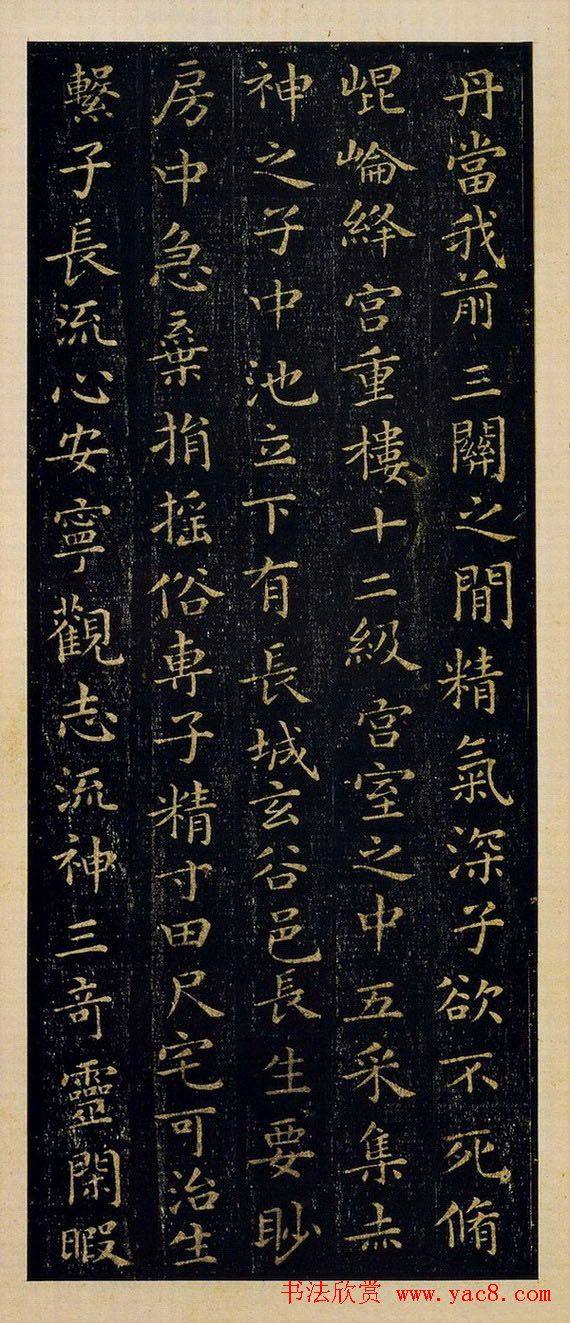 丹當我前三關之間精氣深子欲不死脩
崐崘絳宮重樓十二級宮室之中五采集赤
神之子中池立下有長城玄谷邑長生要眇
房中急棄捐搖俗專子精寸田尺宅可治生
繫子長流心安寧觀志流神三奇靈閑暇
书法欣赏 www.yac8.com